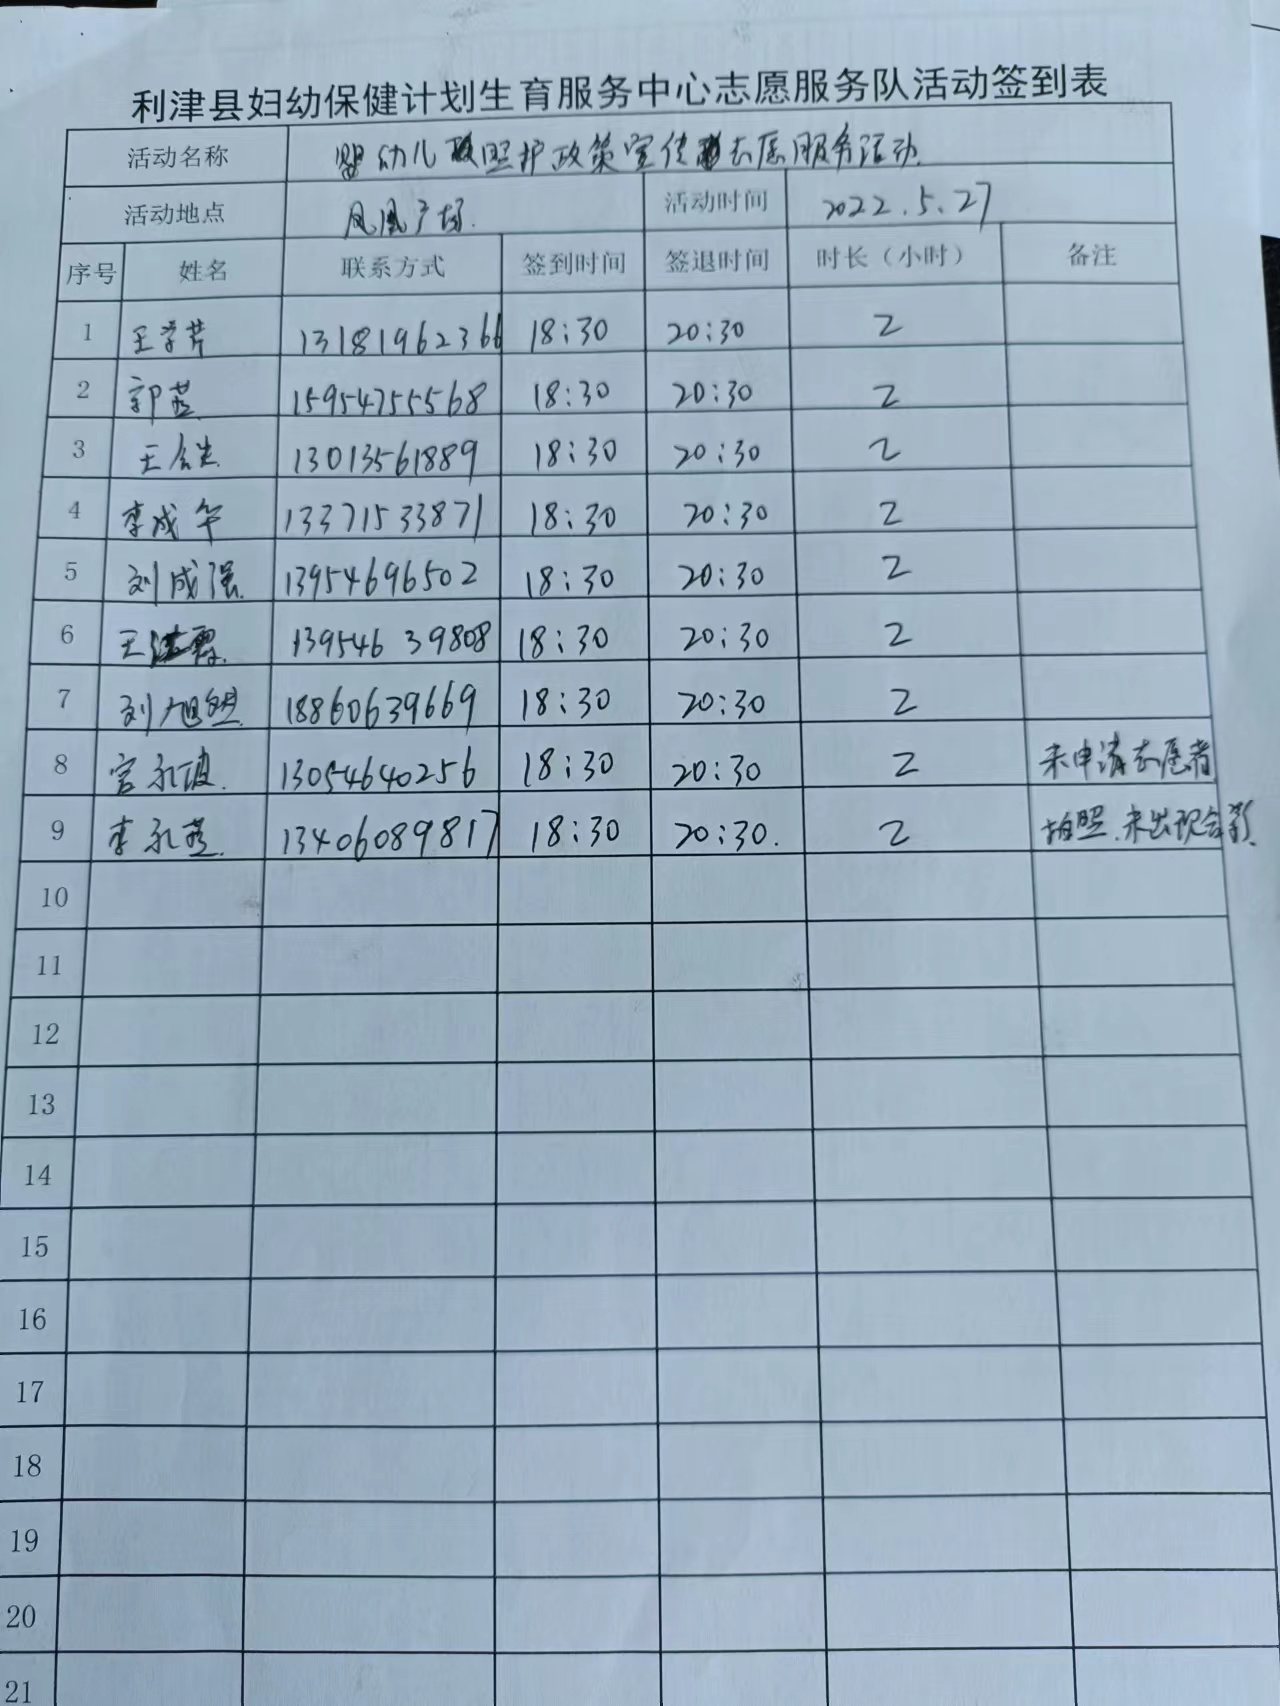 利津县妇幼保健计划生育服务中心志愿服务队活动签到表
活动名称 婴幼儿照护政策宣传志愿服务活动
活动地点 凤凰广场 活动时间 2022.5.27
序号 姓名 联系方式 签到时间 签退时间 时长（小时） 备注
1 王学芹 13181962366 18:30 20:30 2
2 郭燕 15954755568 18:30 20:30 2
3 王 13013561889 18:30 20:30 2
4 李成华 13371533871 18:30 20:30 2
5 刘成强 13954696502 18:30 20:30 2
6 王洪霞 13954639808 18:30 20:30 2
7 刘旭 18860639669 18:30 20:30 2
8 宫永波 13054640256 18:30 20:30 2 未申请志愿者
9 李永燕 13406089817 18:30 20:30. 2 拍照.未出现合影
10
11
12
13
14
15
16
17
18
19
20
21